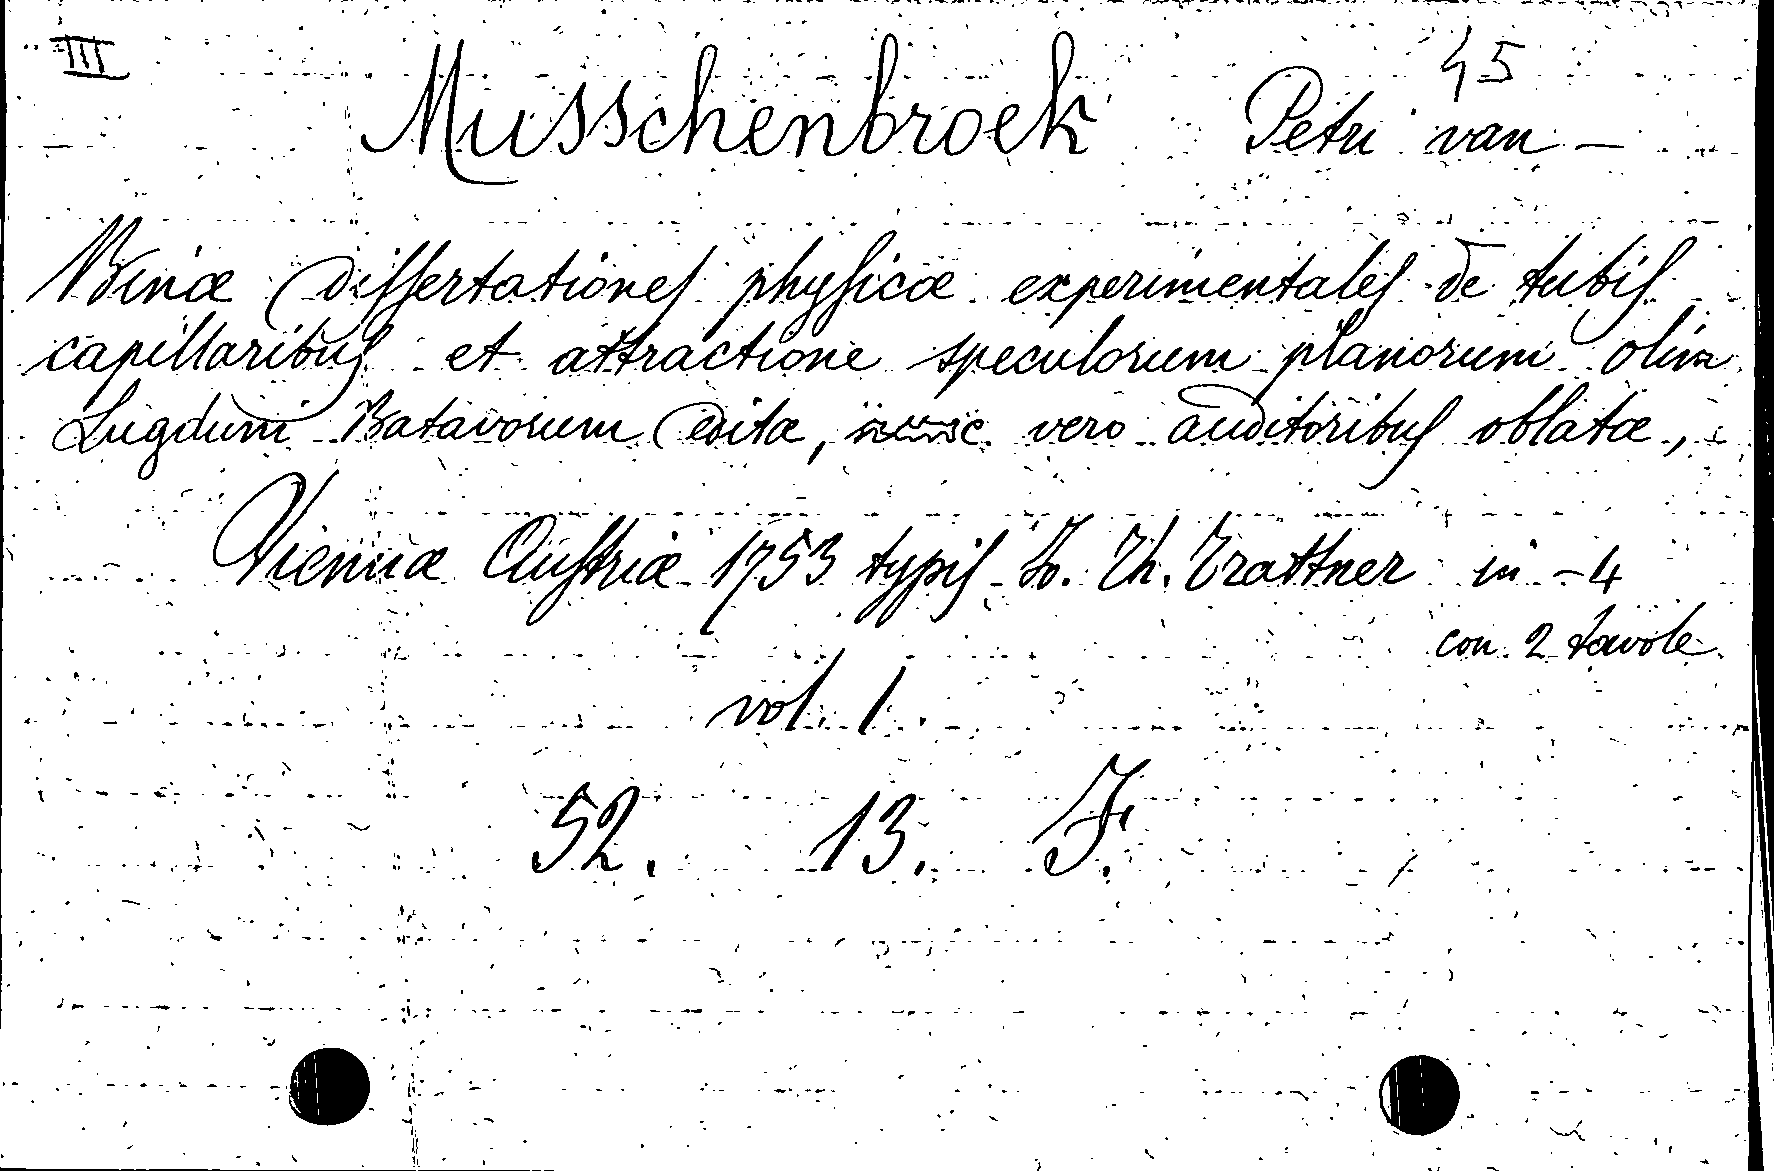 III
45
Musschenbroek Petri van —
Binæ Dissertationes physicæ experimentales de tubis
capillaribus et attractione speculorum planorum olim
Lugduni Batavorum Editæ, nunc vero auditoribus oblatæ,
Viennæ Austriæ 1753 typis Io. Th. Trattner in - 4
con 2 tavole
vol. 1.
52. 13. F.